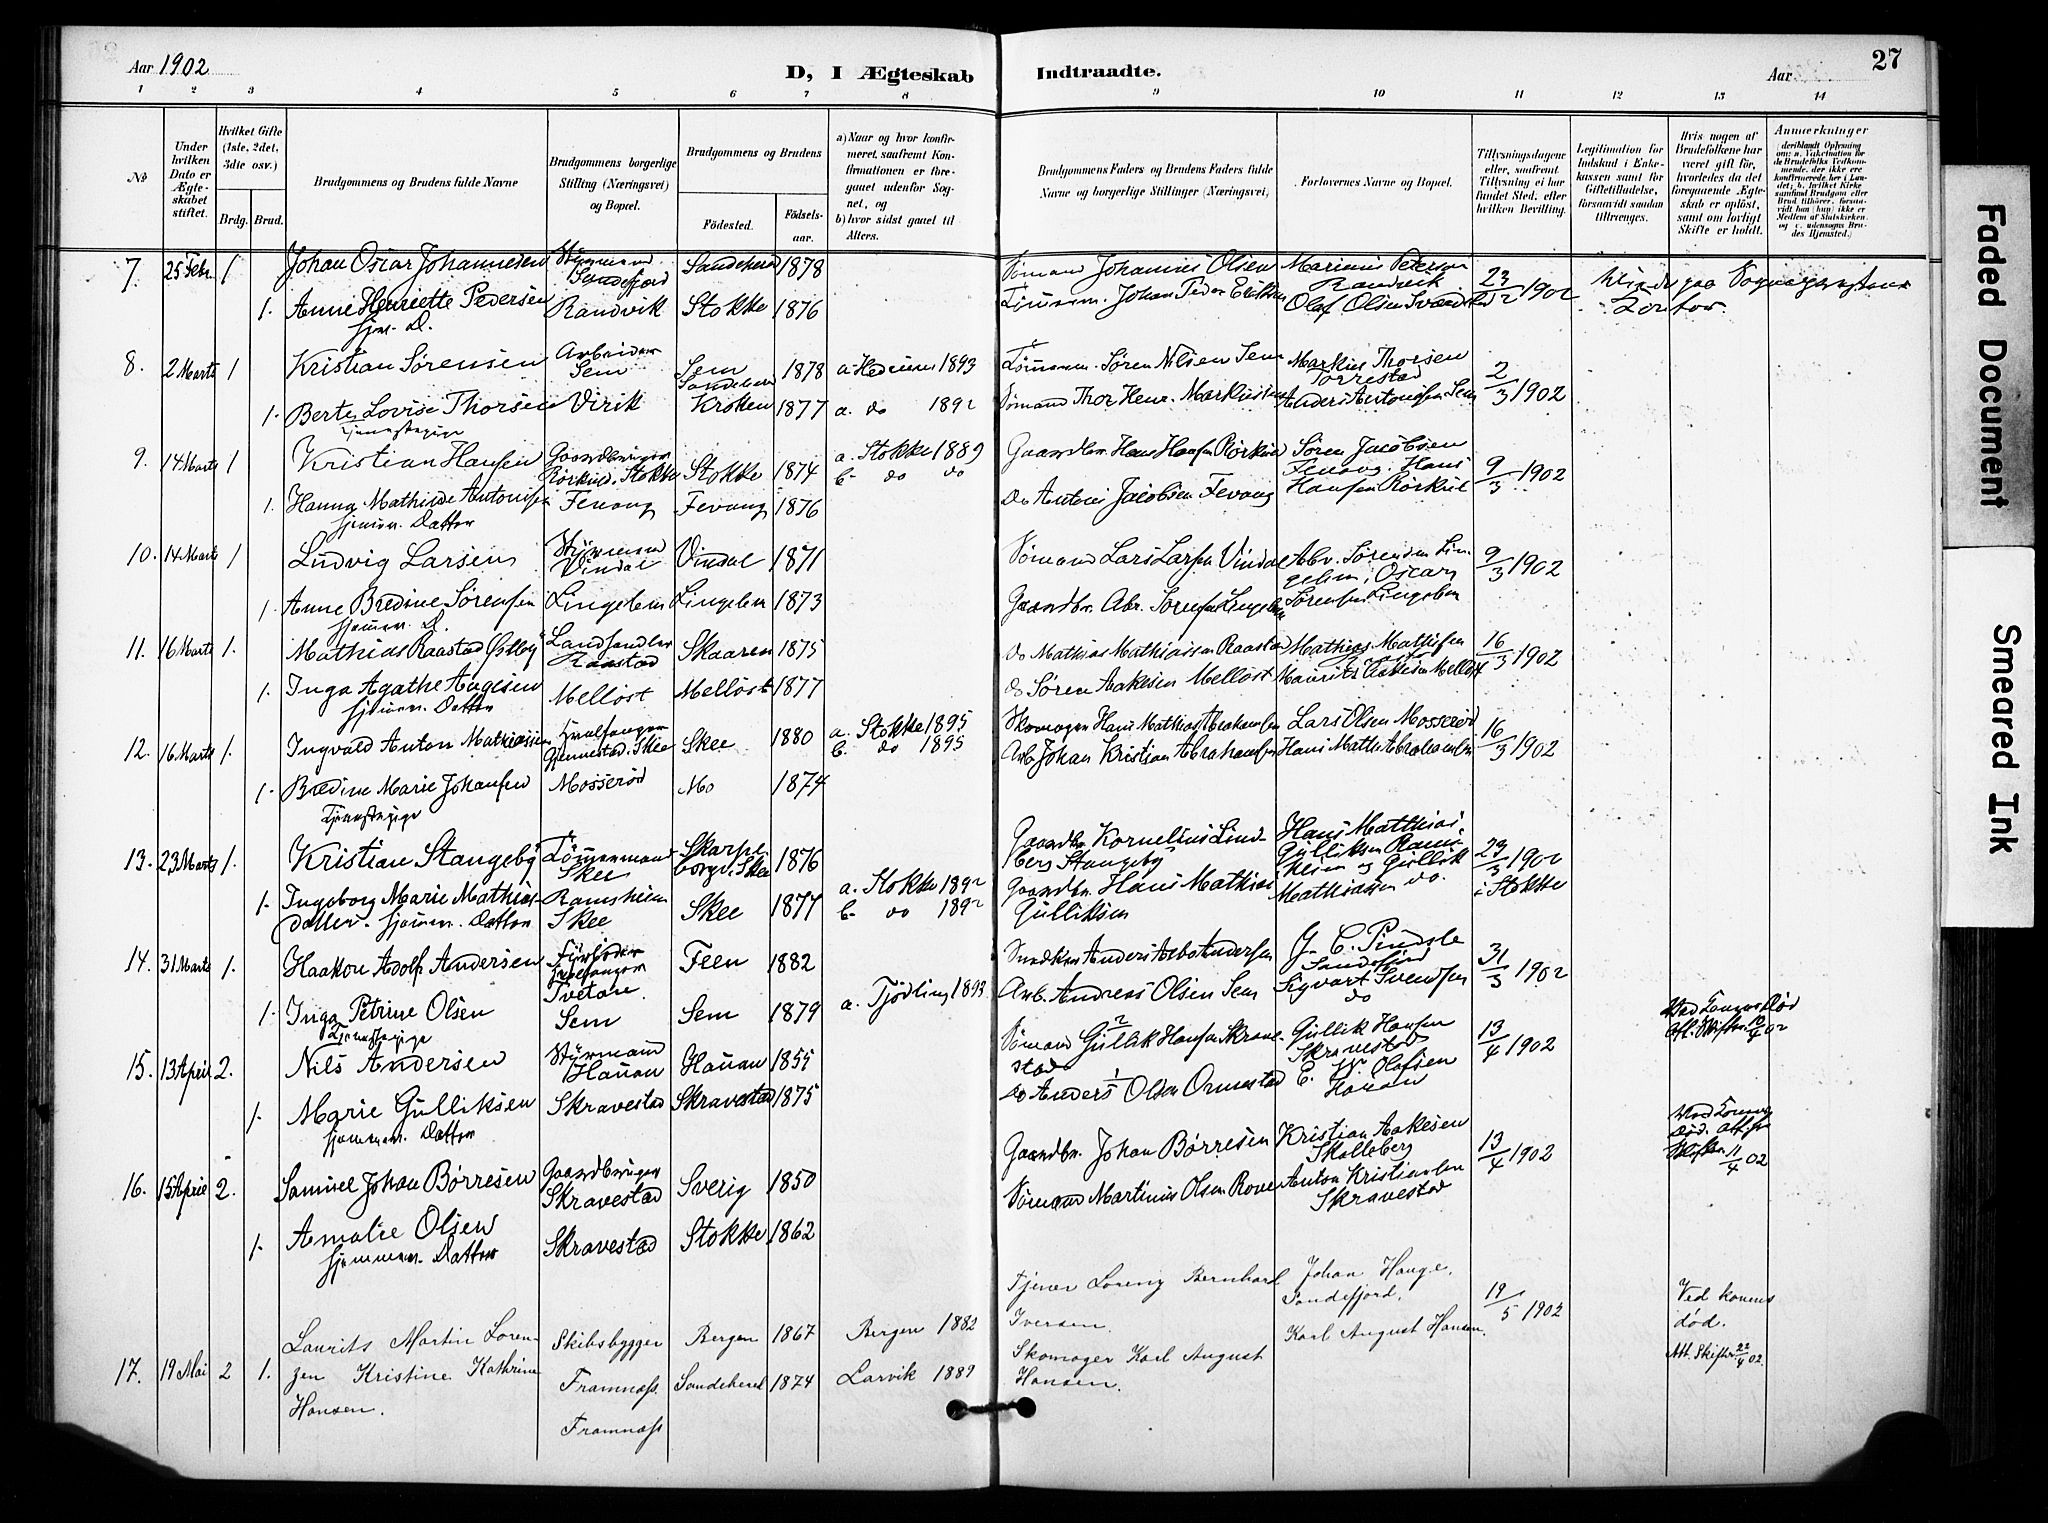 Aar 1902
D, I Ægteskab
Indtraadte.
Aar
27
1 2 3 4 5 6 7 8 9 10 11 12 13 14
No
Under hvilken Dato er Ægteskabet stiftet.
Hvilket Gifte (1ste, 2det, 3die osv.)
Brdg. Brud.
Brudgommens og Brudens fulde Navne
Brudgommens borgerlige Stilling (Næringsvei) og Bopæl.
Brudgommens og Brudens
Fødested.
Fødselsaar.
a) Naar og hvor konfirmeret, saafremt Konfirmationen er foregaaet udenfor Sognet, og
b) hvor sidst gaaet til Alters.
Brudgommens Faders og Brudens Faders fulde Navne og borgerlige Stillinger (Næringsvei)
Forlovernes Navne og Bopæl.
Tillysningsdagene eller, saafremt Tillysning ei har fundet Sted, efter hvilken Bevilling.
Legitimation for Indskud i Enkekassen samt for Giftetilladelse, forsaavidt saadan tiltrænges.
Hvis nogen af Brudefolkene har været gift før, hvorledes da det foregaaende Ægteskab er opløst, samt om lovligt Skifte er holdt.
Anmærkninger
7. 25 Febr. 1 Johan Oscar Johannesen Styrmand Sandefjord Sandeherred 1878 Sømand Johannes Olsen Marinius Pedersen Randvik 23/2 1902 Viede paa Sognepræstens Kontor.
1. Anne Henriette Pedersen hjem. D. Randvik Stokke 1876 Tømmerm. Johan Peder Eriksen Olaf Olsen
8. 2 Marts 1 Kristian Sørensen Arbeider Sem Sem 1878 a. Hedrum 1893 Tømmerm. Søren Nilsen Sem Markus Thorsen Torrestad 2/3 1902
1. Berte Lovise Thorsen Tjenestepige Virik Sandeherred Kroken 1877 a. do 1892 Sømand Thor Henr. Markussen Anders Antonisen Sem
9. 14 Marts 1 Kristian Hansen Gaardbruger Rørkoll, Stokke Stokke 1874 a. Stokke 1889 b. do do Gaardbr. Hans Hansen Søren Jacobsen Fevang, Hans Hansen 9/3 1902
1. Hanna Mathilde Antonisen hjemm. Datter Fevang Fevang 1876 do Antoni Jacobsen Fevang
10. 14 Marts 1 Ludvig Larsen Styrmand Vindal Vindal 1871 Sømand Lars Larsen Vindal Abr. Sørensen Lingelem, Oscar Sørensen Lingelem 9/3 1902
1. Anne Bredine Sørensen hjemm. D. Lingelem Lingelem 1873 Gaardbr. Abr. Sørensen Lingelem
11. 16 Marts 1. Mathias Raastad Østby Landhandler Raastad Skaaren 1875 do Mathias Mathiassen Raastad Mathias Mathisen 16/3 1902
1. Inga Agathe Aagesen hjemm. Datter Melløst Melløst 1877 do Søren Aakesen Melløst Maurits Aakesen Melløst
12. 16 Marts 1. Ingvald Anton Mathiassen Hvalfanger Gjennestad, Skee Skee 1880 a. Stokke 1895 b. do 1895 Skomager Hans Mathias Abrahamsen Lars Olsen Mosserød 16/3 1902
1. Bredine Marie Johansen Tjenestepige Mosserød Mo 1874 Arb. Johan Kristian Abrahamsen Hans Math. Abrahamsen
13. 23 Marts 1. Kristian Stangeby Tømmermand Skee Skarpeborg i Skee 1876 Gaardbr. Kornelius Lindberg Stangeby Hans Matthias Gulliksen 23/3 1902 i Stokke
1. Ingeborg Marie Mathiasdatter hjemm. Datter Ramsheim Skee Skee 1877 a. Stokke 1892 b. do 1892 Gaardbr. Hans Mathias Gulliksen og Gullik Mathiassen do.
14. 31 Marts 1. Haakon Adolf Andersen Fyrbøder Hvalfanger Tvetan Feen 1882 Snedker Anders Andersen G. C. Pindsle Sandefjord 31/3 1902
1. Inga Petrine Olsen Tjenestepige Sem Sem 1879 a. Tjødling 1893 Arb. Andreas Olsen Sem Sigvart Svendsen do
15. 13 April 2. Nils Andersen Styrmand Hauan Hauan 1855 Sømand Gullik Hansen Skravestad Gullik Hansen Skravestad 13/4 1902 Ved Konens Død Att. Skifter 10/4 02
1. Marie Gulliksen hjemmev. Datter Skravestad Skravestad 1875 do Anders Olsen Ormestad E. W. Olafsen Hauan
16. 15 April 2. Samuel Johan Børresen Gaardbruger Skravestad Sverig 1850 Gaardbr. Johan Børresen Kristian Aakesen Skalleberg 13/4 1902 Ved Konens Død. Att. fr Skifter 11/4 02
1. Amalie Olsen hjemmev. Datter Skravestad Stokke 1862 Sømand Martinius Olsen Rove Anton Kristiansen Skravestad
17. 19 Mai 2 1. Laurits Martin Lorenzen Kristine Kathrine Hansen. Skibsbygger Framnæss Framnæss Bergen 1867 Sandeherred 1874 Bergen 1882 Larvik 1889
Tjener Lorenz Bernhard Iversen. Skomager Karl August Hansen.
Johan Hauge, Sandefjord. Karl August Hansen. 19/5 1902 Ved konens død. Att. Skifter 22/4 02.
Faded Document
Smeared Ink